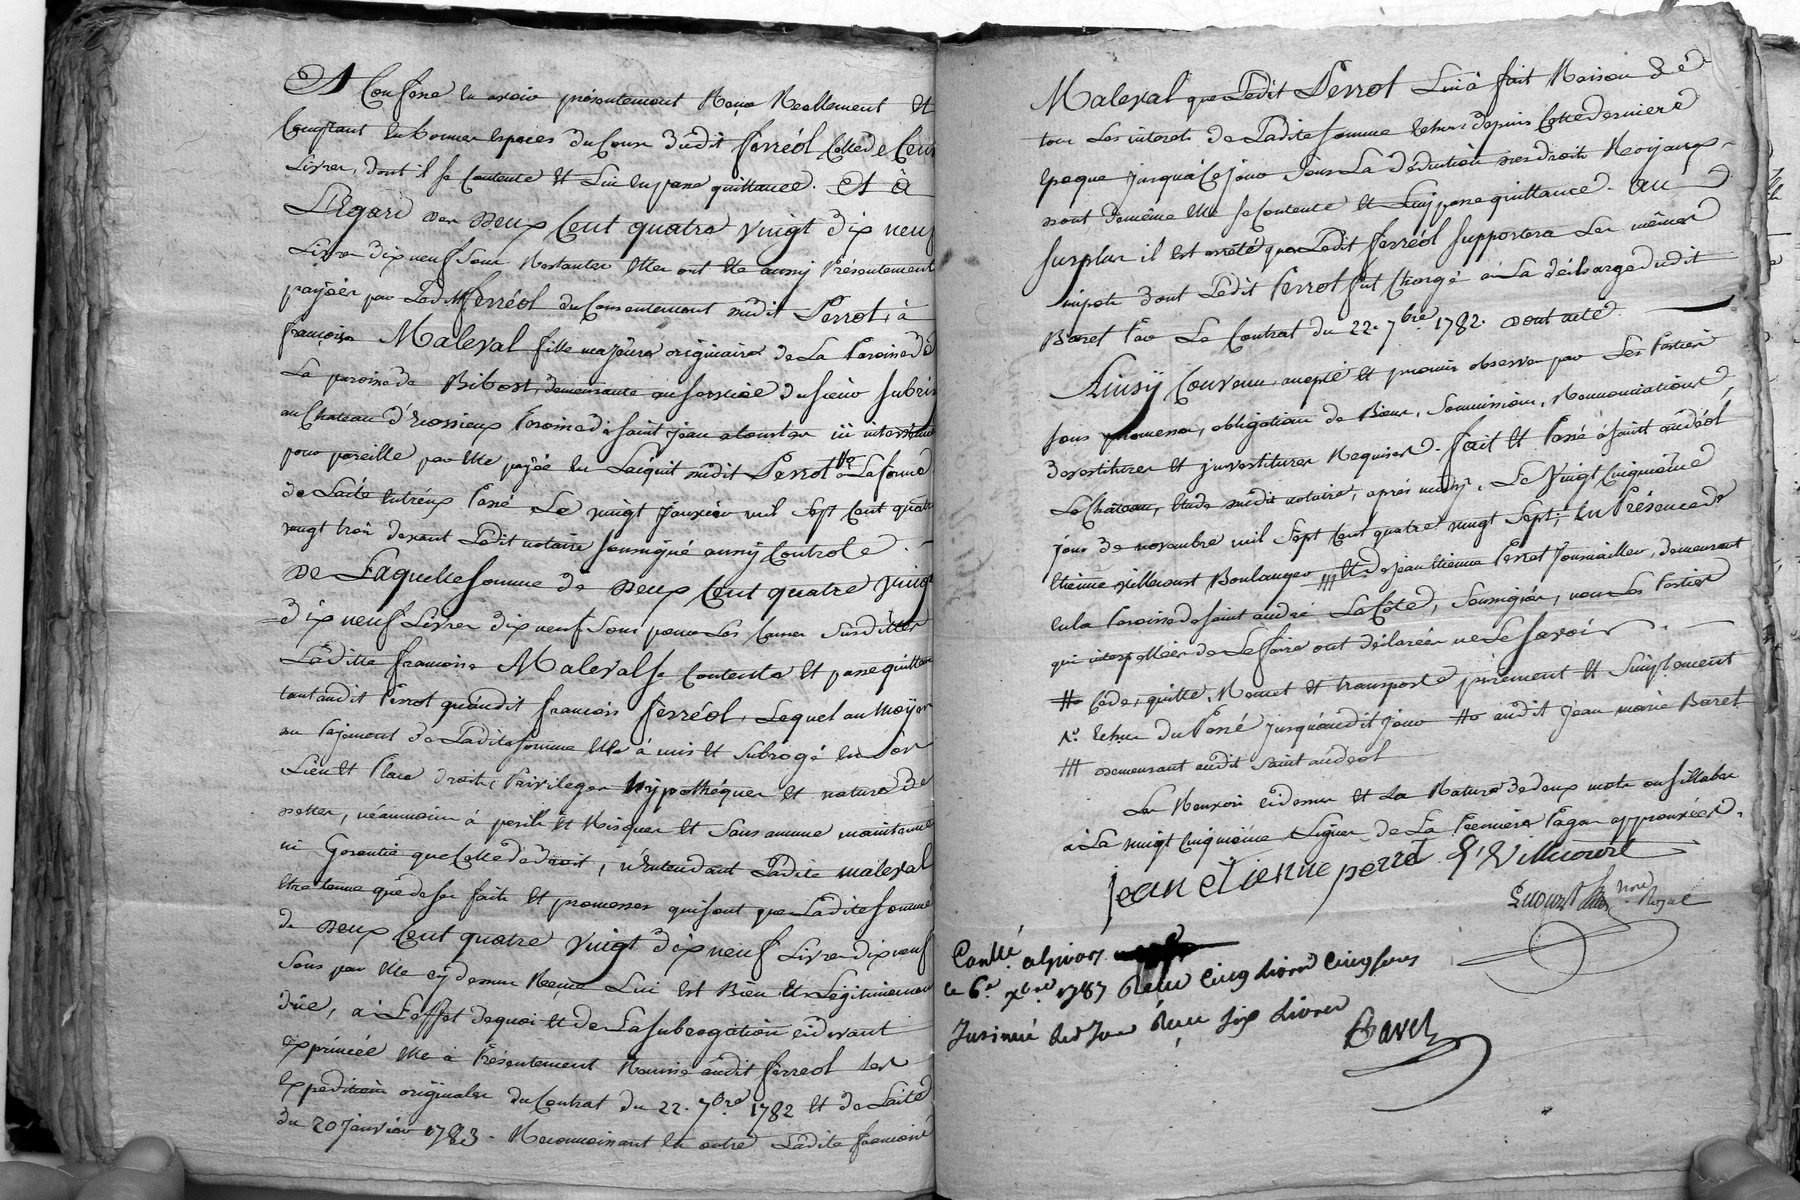 A Confessé en avoir présentement Reçu Reellement Et
Comptant en bonnes especes du Cours dudit ferréol Celle de Cent
Livres, dont il se Contente Et Lui en passe quittance. Et à
L'Egard des deux Cent quatre vingt dix neuf
Livres dix neuf Sous Restantes Elles ont Eté aussy Présentement
payées par Ledit ferréol du Consentement dudit Perrot, à
françoise Maleval fille majeure originaire de La Paroisse de
La paroisse de Bibost, demeurante au service du sieur
au Chateau d' Paroisse de Saint jean ici
pour pareille par Elle payée En L'acquit dudit Perrot à La forme
de L'acte Entr'eux Passé Le vingt janvier mil Sept Cent quatre
vingt trois devant Ledit notaire soussigné aussy Controlé.
De Laquelle Somme de Deux Cent quatre vingt
dix neuf Livres dix neuf Sous pour Les Causes Susdittes
Laditte françoise Maleval se Contente Et passe quittance
tant audit Perrot qu'audit françois ferréol, Lequel au moÿen
du Payement de Ladite somme Elle à mis Et Subrogé En Son
Lieu Et Place droits, Privileges hypothéques Et nature de
dettes, néanmoins à perils Et Risques Et Sans aucune maintenue
ni Garantie que Celle de droit, n'Entendant Ladite maleval
Etre tenue que de ses faits Et promesses qui sont que Ladite Somme
de Deux Cent quatre vingt dix neuf Livres dix neuf
Sous par Elle cy dessus Reçue Lui Est Bien Et Légitimement
düe, à L'effet de quoi Et de La subrogation ci devant
exprimée Elle à Présentement Remise audit ferreol Les
Expeditions originales du Contrat du 22. 7bre. 1782 Et de L'acte
du 20 janvier 1783. Reconnoissant En outre Ladite francoise
Maleval que Ledit Perrot Lui à fait Raison de
tous Les interets de Ladite Somme Echus depuis Cette derniere
Epoque jusqu'à Ce jour Sous La déduction des droits Royaux,
dont de même Elle se Contente Et Luy passe quittance. Au
Surplus il Est arrêté que Ledit ferréol Supportera Les mêmes
impots dont Ledit Perrot fut Chargé à La décharge dudit
Baret Par Le Contrat du 22. 7bre. 1782. dont acte.
Ainsÿ Convenu, accepté Et promis observer par Les Parties
sous promesses, obligations de Biens, Soumissions, Renonciations,
devestitures Et jnvestitures Requises. fait Et Passé à saint andéol
Le Château, Etude dudit notaire, après midy, Le Vingt Cinquième
jour de novembre mil Sept Cent quatre vingt Sept, En Présence de
Etienne villecourt Boulanger /// Et de jean Etienne Perret Journaillier, demeurant
En La Paroisse de Saint andré La Côte, Soussignés, non Les Parties
qui interpellées de Le faire ont déclarées ne Le Savoir.
# Cede, quitte, Remet Et transporte purement Et Simplement
Echus du Passé jusqu'audit jour # audit Jean marie Baret
/// demeurant audit Saint andeol
Les Renvois cidessus Et La Rature de deux mots ou sillabes
à La vingt Cinquième Lignes de La Premiere Page approuvées.
jean etienne perret E. Villecourt
Nore. Royal
Conllé. a Givors
le 6e. xbre. 1787 Reçu Cinq Livres Cinq sous
Insinué led Jour Reçu six Livres
Baret